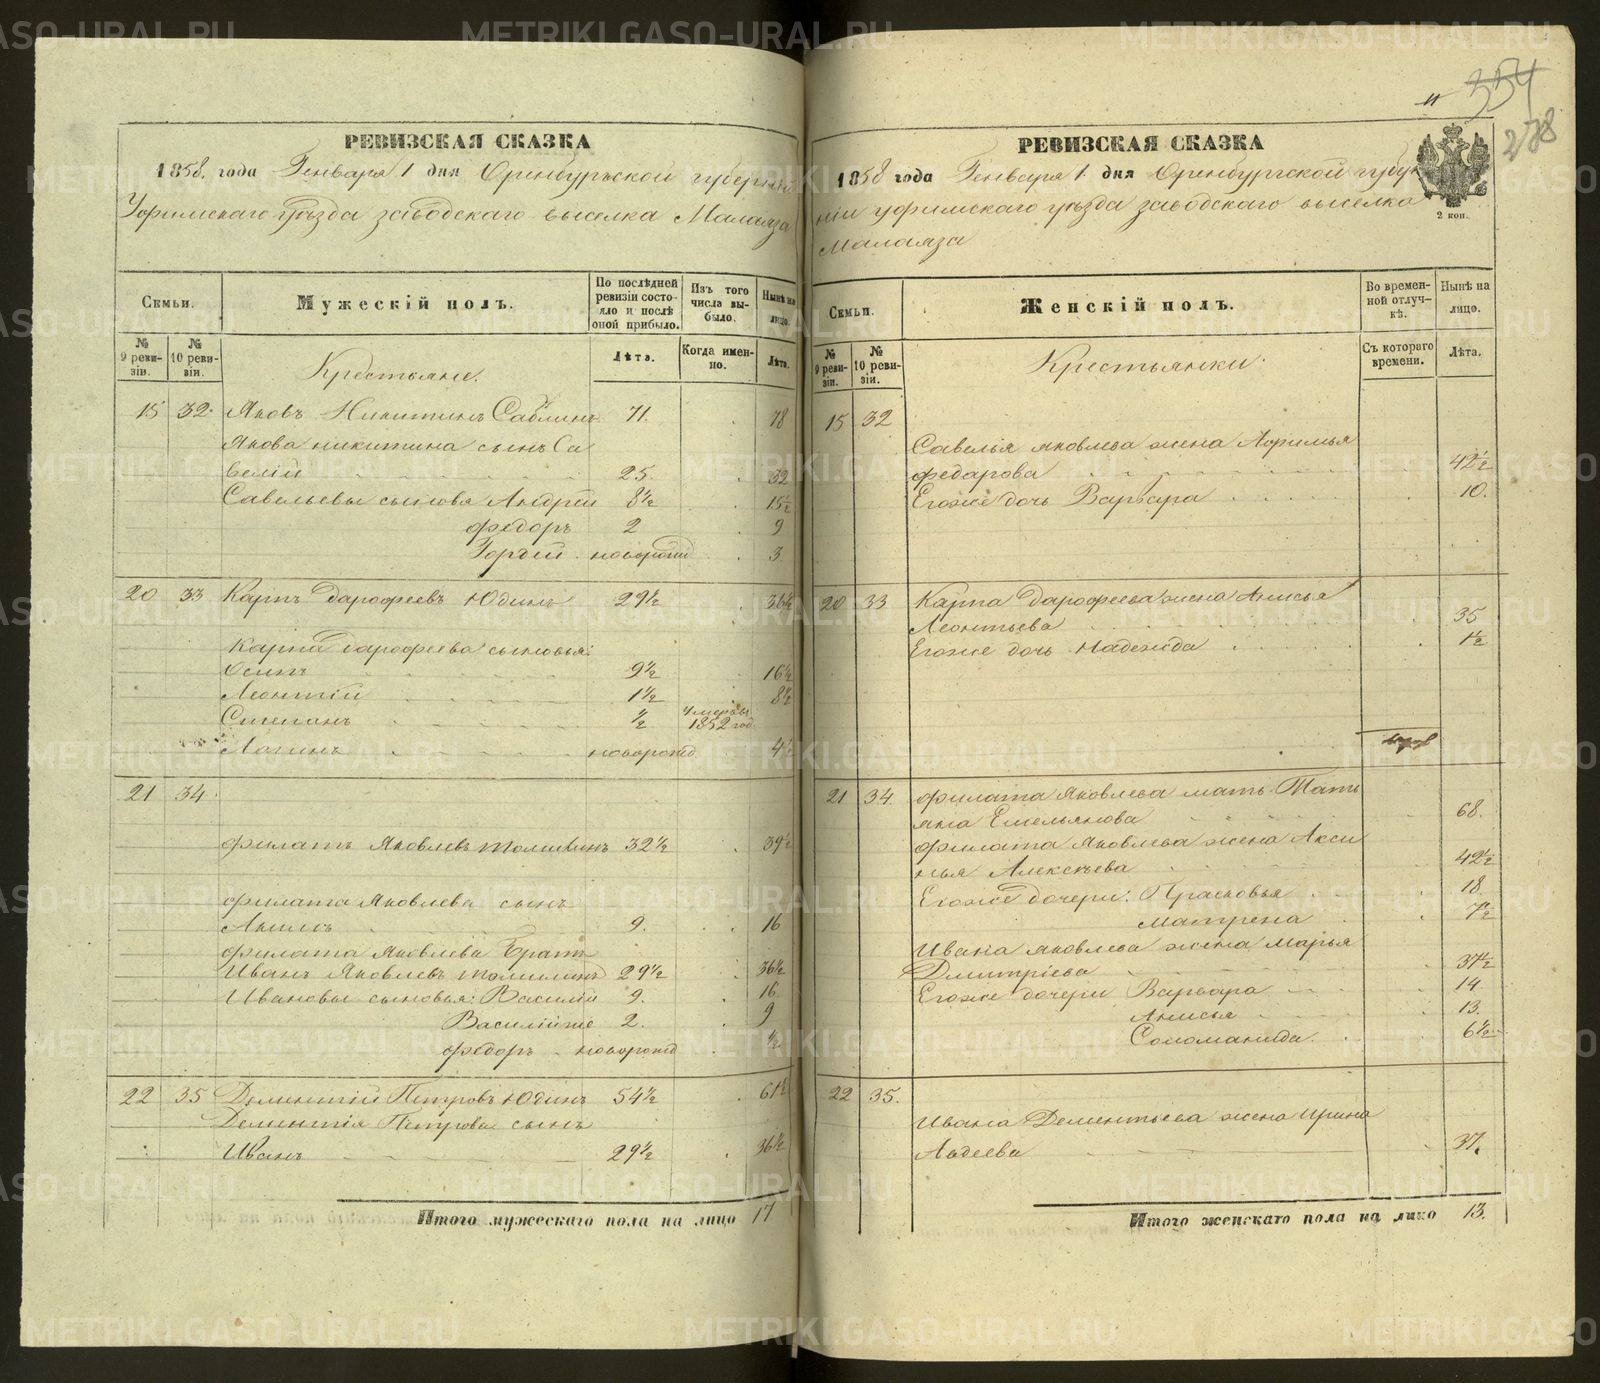 РЕВИЗСКАЯ СКАЗКА
1858. года Генваря 1 дня Оринбургской губерніи
Уфимскаго уѣзда заводскаго выселка Малаяза
Семьи.
Мужескій полъ.
По послѣдней ревизіи состояло и послѣ оной прибыло.
Изъ того числа выбыло.
Нынѣ на лицо.
№ 9 ревизіи.
№ 10 ревизіи.
Крестьяне.
Лѣта.
Когда именно.
Лѣта.
15 32. Яковъ Никитинъ Саблинъ 71. 78
Якова никитина сынъ Са
велій 25. 32
Савельевы сыновя Андрей 8½ 15½
федоръ 2 9
Гордей новорожд 3
20 33 Карпъ Дарофеевъ Юдинъ 29½ 36½
Карпа Дарофеева сыновья:
Осипъ 9½ 16½
Леонтій 1½ 8½
Степанъ ½ Умеръ въ 1852 год
Логинъ новорожд 4½
21 34.
филатъ Яковлевъ томилинъ 32½ 39½
филата Яковлева сынъ
Акимъ 9. 16
филата Яковлева братъ
Иванъ Яковлевъ томилинъ 29½ 36½
Ивановы сыновья: Василій 9. 16
Василійже 2. 9
федоръ новорожд ½
22 35 Дементій Петровъ Юдинъ 54½ 61½
Дементія Петрова сынъ
Иванъ 29½ 36½
Итого мужескаго пола на лицо 17
354
278
РЕВИЗСКАЯ СКАЗКА
2 коп.
1858 года Генваря 1. дня Оринбургской губер
ніи уфимскаго уѣзда заводскаго выселка
Малаяза
Семьи.
Женскій полъ.
Во временной отлучкѣ.
Нынѣ на лицо.
№ 9 ревизіи.
№ 10 ревизіи.
Крестьянки.
Съ котораго времени.
Лѣта.
15 32
Савелія яковлева жена Афимья
федарова 42½
Егоже дочь Варвара 10.
20 33 Карпа Дарофеева жена Анисья
Леонтьева 35
Егоже дочь Надежда 1½
21 34. филата Яковлева мать Тать
яна Емельянова 68.
филата Яковлева жена Акси
нья Алексѣева 42½
Егоже дочери: Прасковья 18
матрена 7½
Ивана яковлева жена Марья
Дмитріева 37½
Егоже дочери Варвара 14
Анисья 13.
Соломанида 6½
22 35.
Ивана Дементьева жена Ирина
Авдеева 37.
Итого женскаго пола на лицо 13.
METRIKI.GASO-URAL.RU